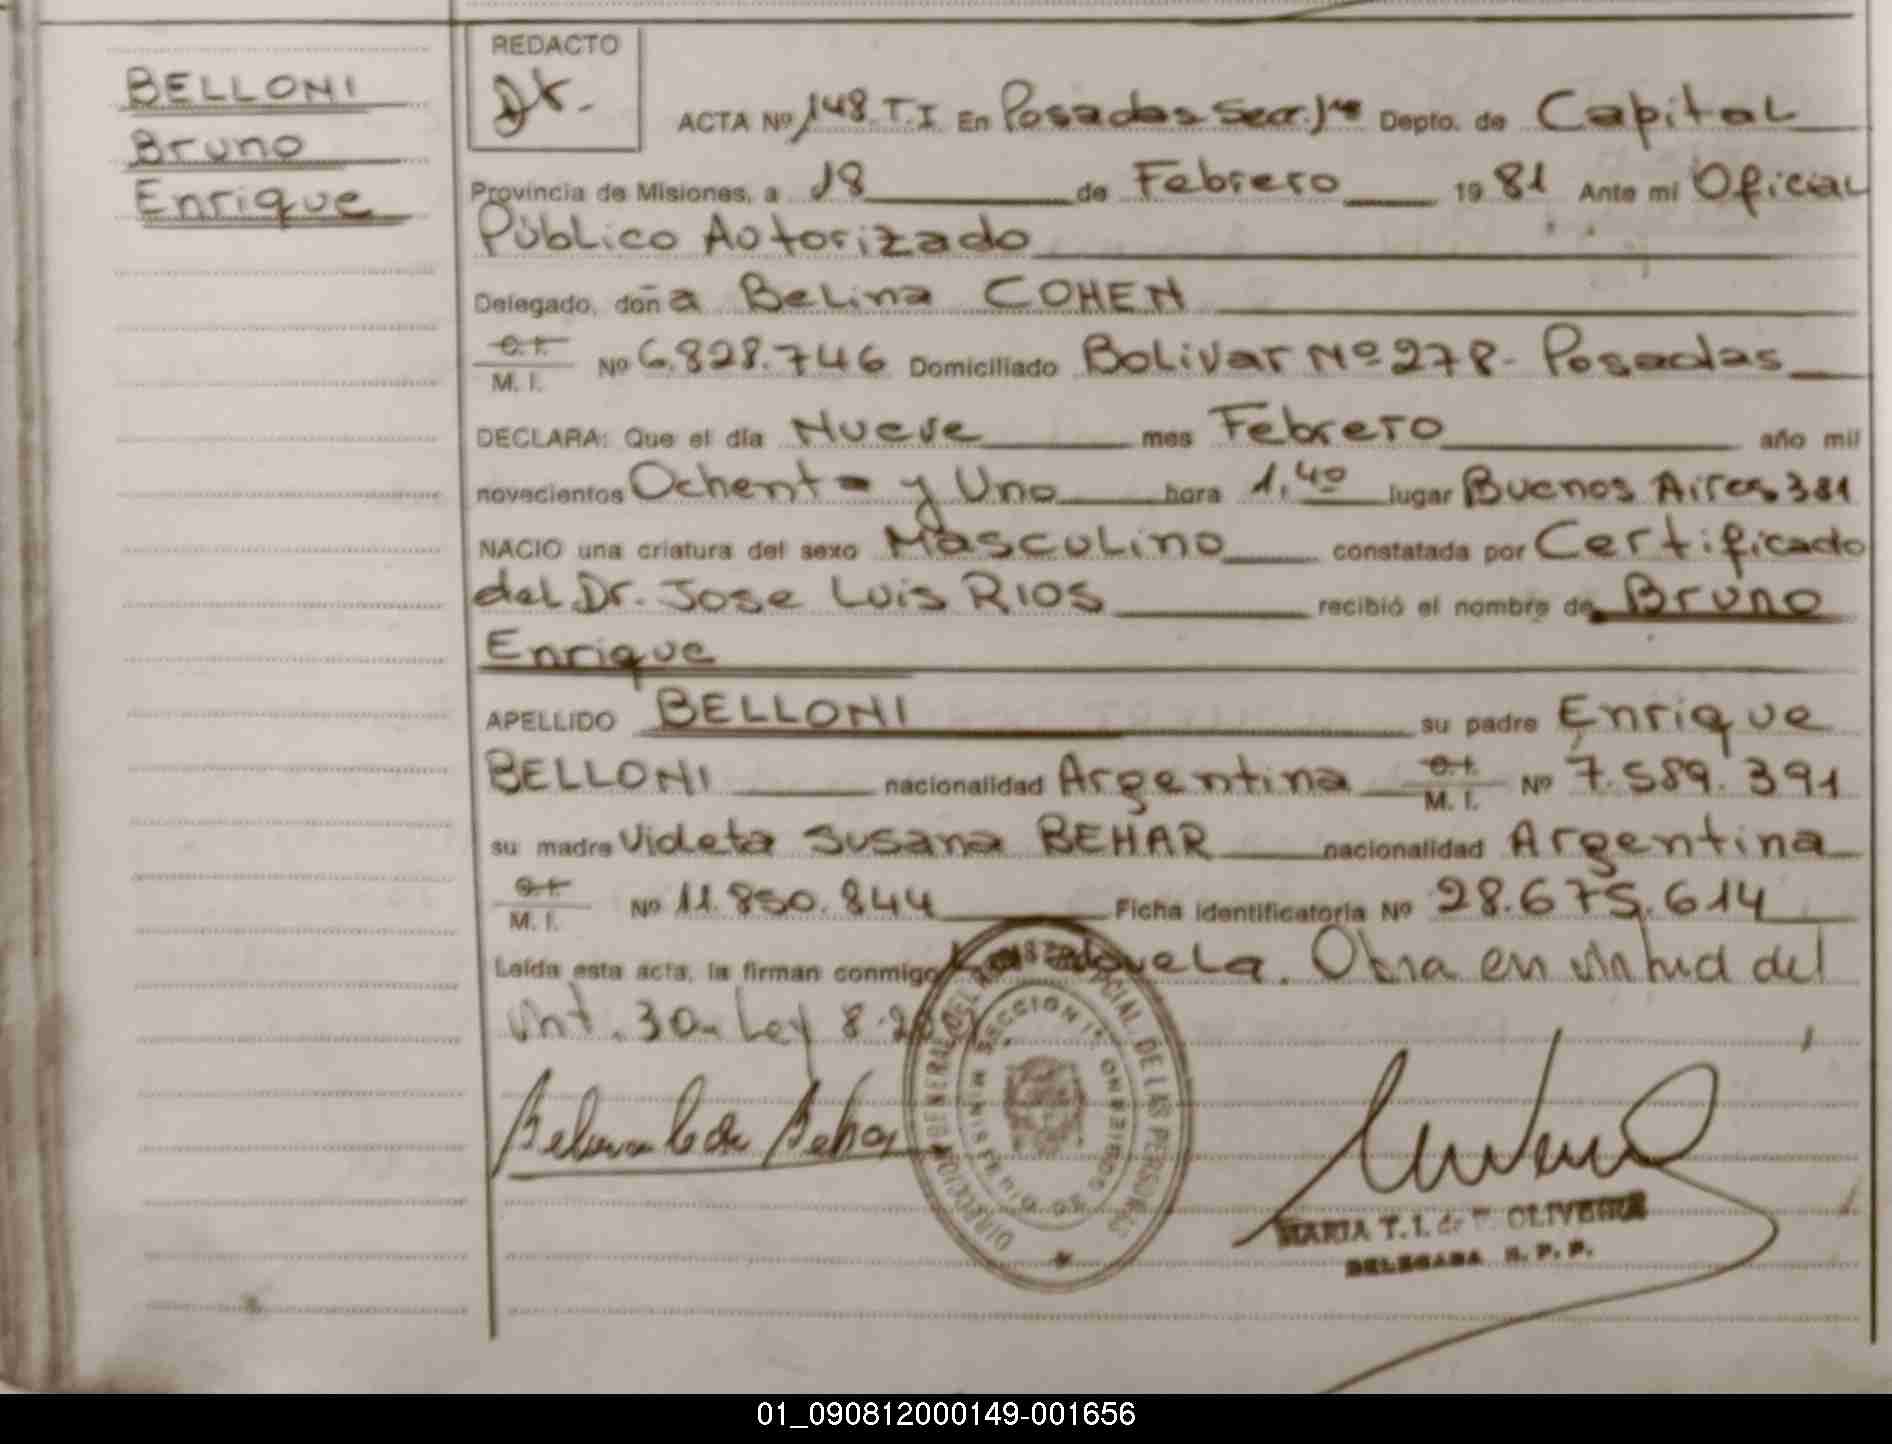 BELLONI
Bruno
Enrique
REDACTO
ACTA Nº 148.T.I En Posadas Secc. 1ra Depto. de Capital
Provincia de Misiones, a 18 de Febrero 1981 Ante mi Oficial
Público Autorizado
Delegado, doña Belina COHEN
C. I.
M. I. Nº 6.828.746 Domiciliado Bolivar Nº 278 - Posadas
DECLARA: Que el día Nueve mes Febrero año mil
novecientos Ochenta y Uno hora 1,40 lugar Buenos Aires 381
NACIO una criatura del sexo Masculino constatada por Certificado
del Dr. Jose Luis RIOS recibió el nombre de Bruno
Enrique
APELLIDO BELLONI su padre Enrique
BELLONI nacionalidad Argentina C. I. M. I. Nº 7.589.391
su madre Violeta Susana BEHAR nacionalidad Argentina
C. I.
M. I. Nº 11.850.844 Ficha identificatoria Nº 28.675.614
Leída esta acta, la firman conmigo La Abuela. Obra en virtud del
Art. 30 Ley
DIRECCION GENERAL DEL REGISTRO PROVINCIAL DE LAS PERSONAS
MINISTERIO DE GOBIERNO SECCION 1ª
MARIA T. I. de OLIVEIRA
DELEGADA R. P. P.
01_090812000149-001656